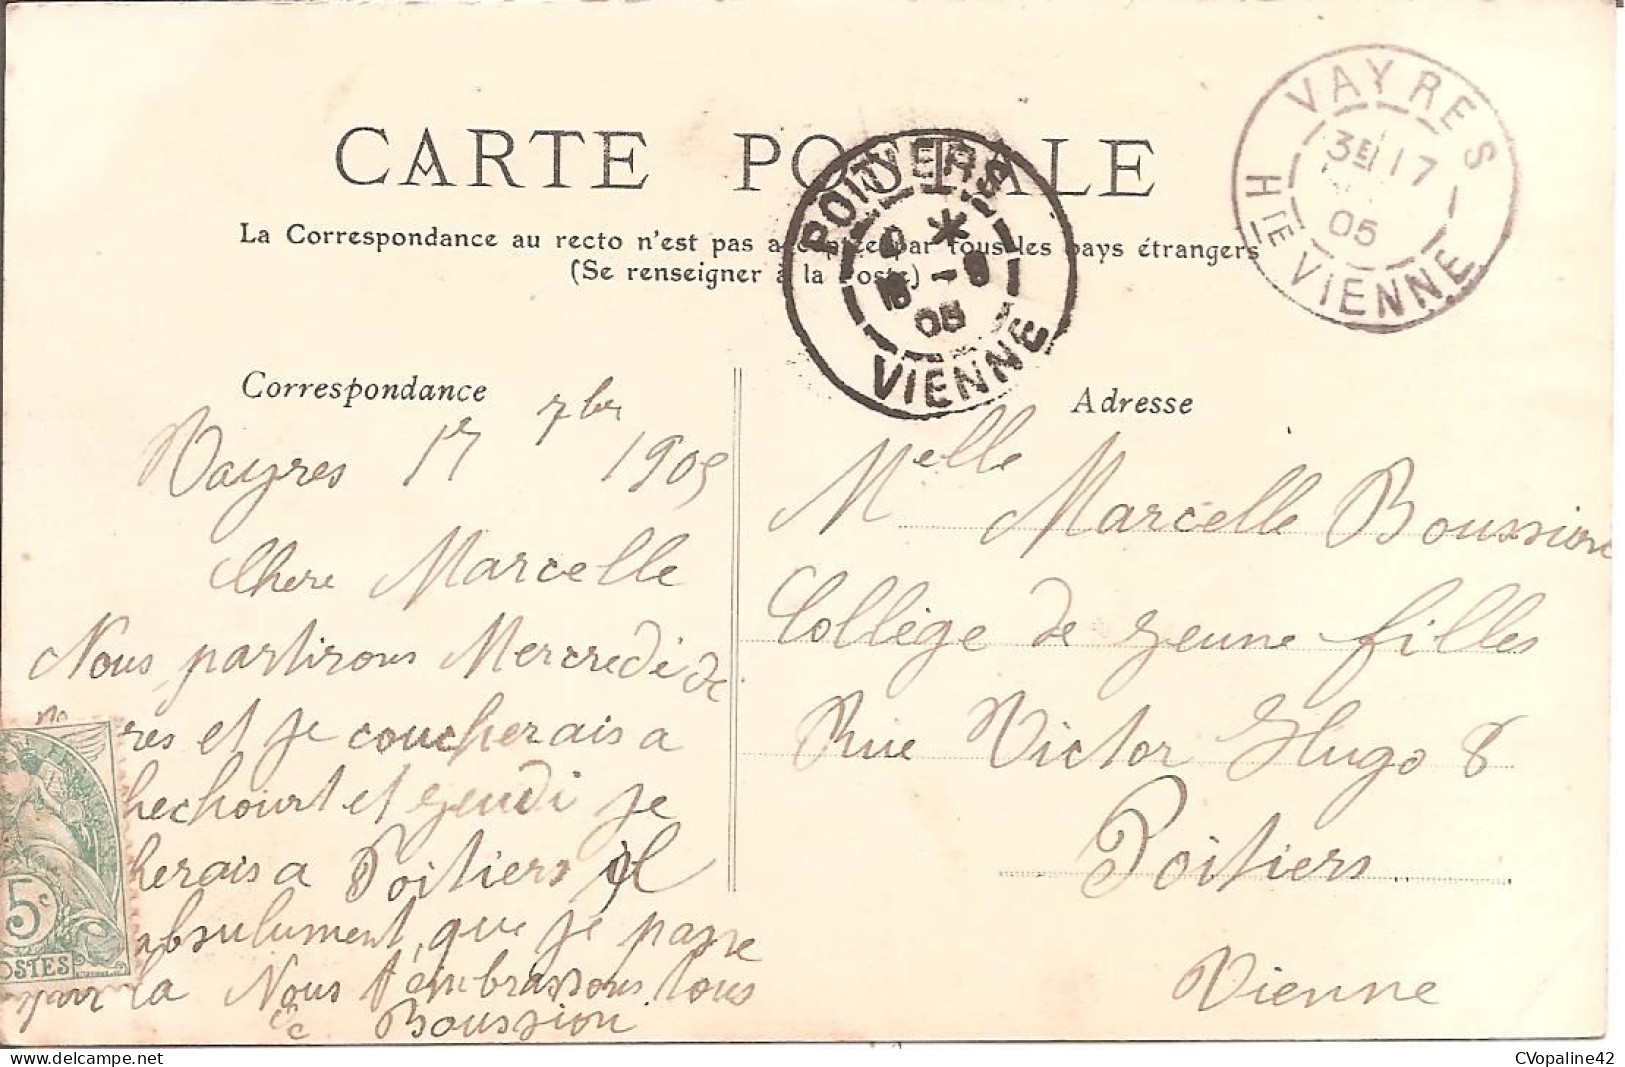 CARTE POSTALE
La Correspondance au recto n'est pas acceptée par tous les pays étrangers
(Se renseigner à la Poste)
POITIERS
* 
18 - 9
05
VIENNE
VAYRES
3E 17
05
HTE VIENNE
Correspondance
Vayres 17 7bre 1905
Chere Marcelle
Nous partirons Mercredi de
res et je coucherais a
hechouart et zeudi je
herais a Poitiers il
absulument que je passe
par la Nous t'embrassons tous
Boussion
5c
POSTES
Adresse
Melle Marcelle Boussion
Collège de zeune filles
Rue Victor Hugo 8
Poitiers
Vienne
CVopaline42